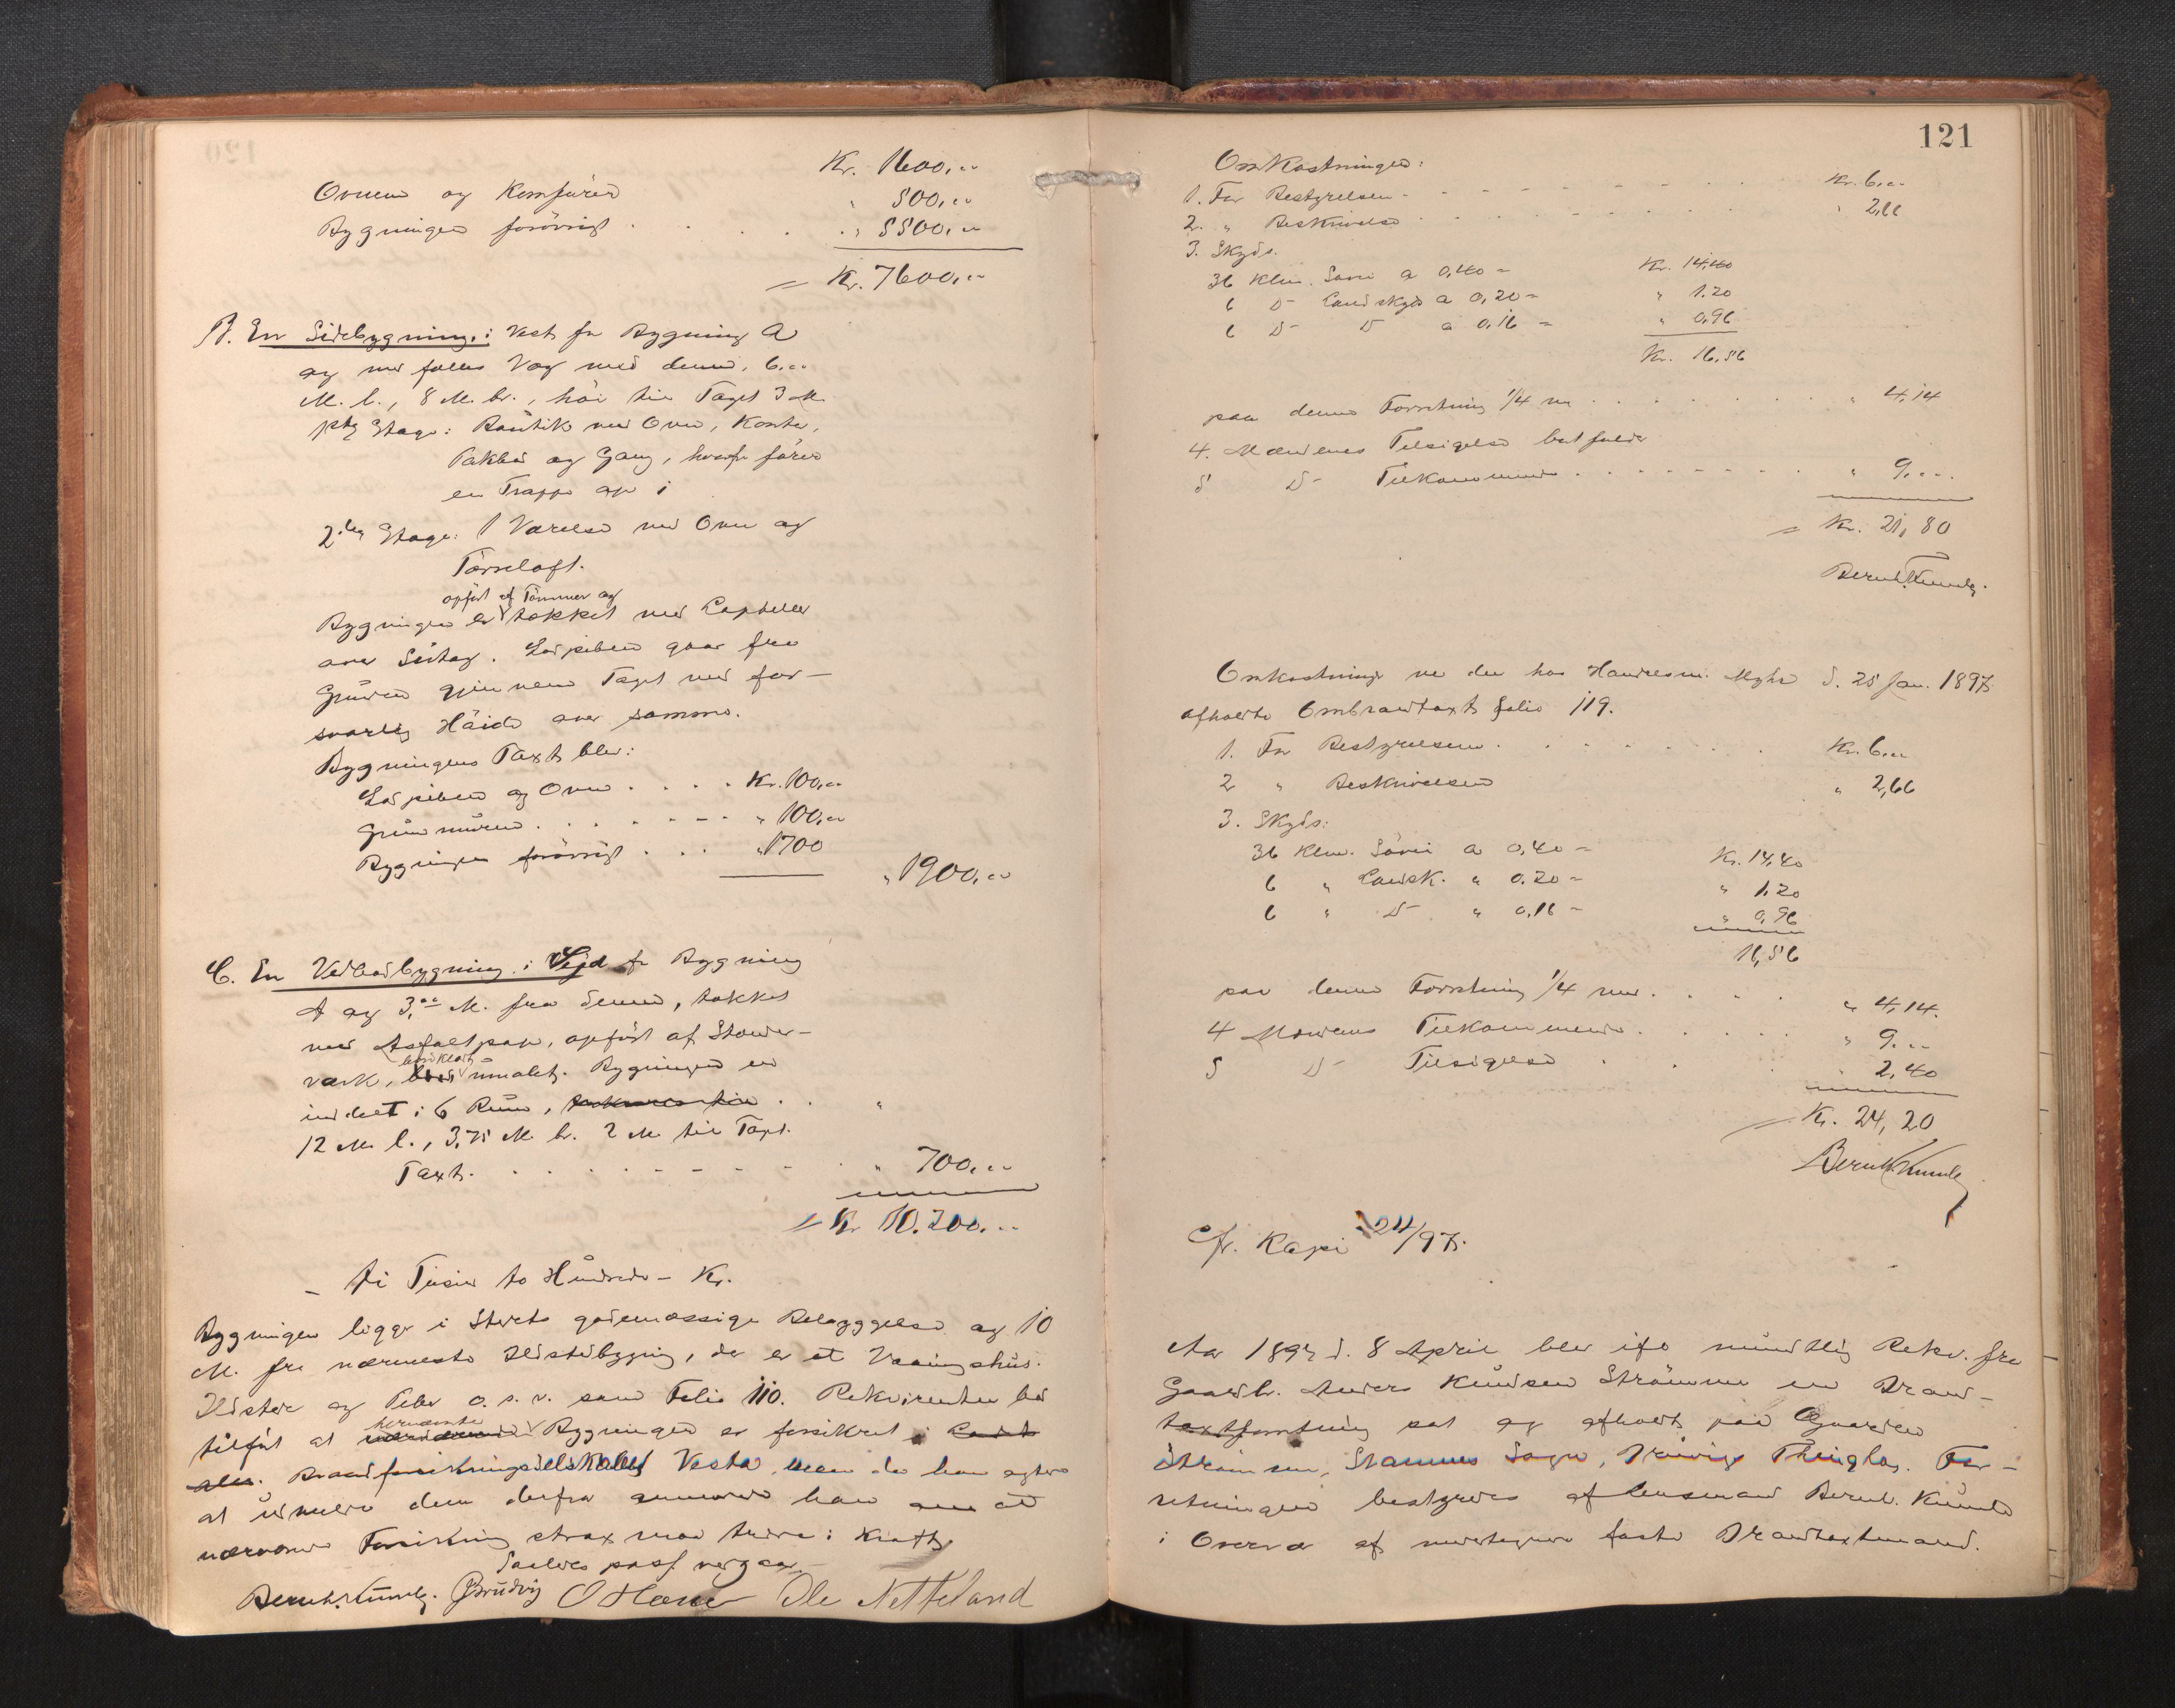 Kr. 1600,00
Ovnene og Komfuren " 500,00
Bygningen forövrigt . . . . " 5500,00
= Kr. 7600,00
B. En Sidebygning, i Vest for Bygning A
og med fælles Væg med denne, 6,00
M. l., 8 M. br., höi til Taget 3 M.
1ste Etage: Boutik med Ovn, Kontor,
Pakbod og Gang, hvorfra förer
en Trappe op i
2den Etage: 1 Værelse med Ovn og
Törreloft.
opfört af Tömmer og
Bygningen er tækket med Lapheller
over Sutag. Skorpiben gaar fra
Grunden gjennem Taget med for-
svarlig Höide over samme.
Bygningens Taxt blev:
piben og Ovn . . . . Kr. 100,00
Grunmuren . . . . . . " 100,00
Bygningen forövrigt . . . " 1700
" 1900,00
C. En Vedbodbygning, i Syd for Bygning
A og 3,00 M. fra denne, tækket
med Asfaltpap, opfört af Stender-
værk, bordklædt umalet. Bygningen er
inddelt i 6 Rum,
12 M. l., 3,75 M. br. 2 M til Taget.
Taxt. . . . . . . . . . " 700,00
= Kr 10.200,00
- ti Tusen to Hundrede - Kr.
Bygningen ligger i Steds godemæssige Belæggelse og 10
M. fra nærmeste Ildstedbygning, der er et Vaaningshus.
Ildsteder og Piber o. s. v. som Folio 110. Rekvirenten lod
tilföt at bemeldte Bygningen er forsikret i
Brandforsikringsselskabet Vesta, men da han agter
at udmelde dem derfra  han at
nærværende Forsikring strax maa træde i Kraft.
Saaledes passeret
Bernh. Kunle. Brudvig O Hane Ole Netteland
121
Omkostninger:
1. For Bestyrelsen - - - - - Kr. 6,00
2. " Beskrivelse . . . . . " 2,66
3. Skyds.
36 Klm. Sövei a 0,40 = Kr. 14,40
6 D- Landskyds a 0,20 = " 1.20
6 D- D a 0,16 = " 0,96
Kr. 16,56
paa denne Forretning 1/4 m . . . . . " 4,14
4. Mændenes Tilsigelse bortfalder
5 D- Tilkommende . . . . . . " 9,00
= Kr. 21,80
Bernh. Kunle.
Omkostninger ved den hos Handelsm. Myhre d. 25 Jan. 1897
afholdte Ombrandtaxt folio 119.
1. For Bestyrelsen . . . . . . Kr. 6,00
2 " Beskrivelsen " 2,66
3. Skyds:
36 Klm. Sövei a 0,40 = Kr. 14,40
6 " Landsk. " 0.20 = " 1.20
6 " D- " 0,16 = " 0,96
16,56
paa denne Forretning 1/4 med . . . . " 4,14.
4 Mændenes Tilkommende . . . . . " 9,00
5 D- Tilsigelse . . . " 2,40
= Kr. 24,20
Bernh. Kunle
cfr. Kopi 24/97.
Aar 1897 d. 8 April blev ifö mundtlig Rekv. fra
Gaardbr. Anders Knudsen Strömme en Brand-
taxtforretning sat og afholdt paa Gaarden
Strömmen, Stamnes Sogn, Bruvigs Thinglag. For-
retningen bestyredes af Lensmand Bernh. Kunle
i Overvær af undertegnede faste Brandtaxtmænd.